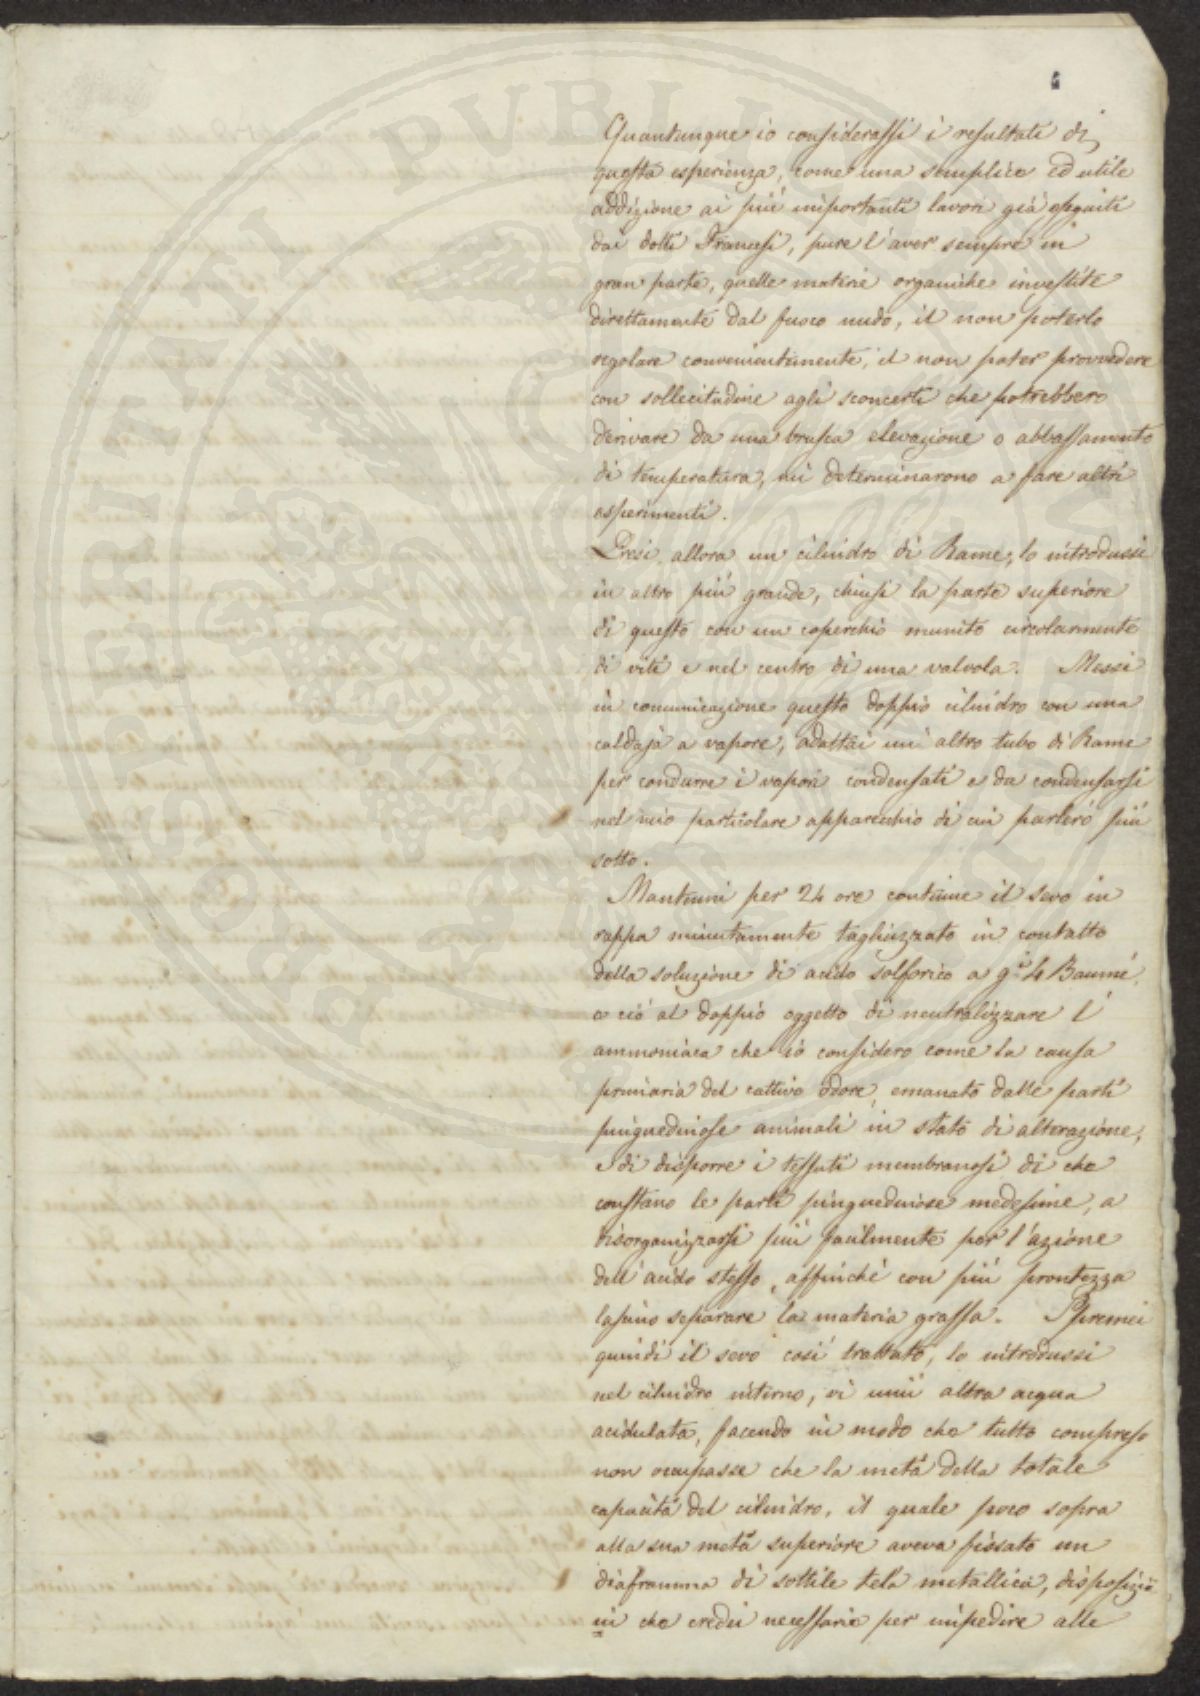 Quantunque io considerassi i resultati di
questa esperienza, come una semplice ed utile
addizione ai più importanti lavori già eseguiti
dai dotti Francesi, pure l'aver sempre in
gran parte, quelle materie organiche investite
direttamente dal fuoco nudo, il non poterlo
regolare convenientemente, il non poter provvedere
con sollecitudine agli sconcerti che potrebbero
derivare da una brusca elevazione o abbassamento
di temperatura, mi determinarono a fare altri
esperimenti.
Presi allora un cilindro di Rame, lo introdussi
in altro più grande, chiusi la parte superiore
di questo con un coperchio munito circolarmente
di viti e nel centro di una valvola. Messi
in comunicazione questo doppio cilindro con una
caldaja a vapore, adattai un altro tubo di Rame
per condurre i vapori condensati e da condensarsi
nel mio particolare apparecchio di cui parlerò più
sotto.
Mantenni per 24 ore continue il sevo in
rappa minutamente tagliuzzato in contatto
della soluzione di acido solforico a g.i 4 Baumé,
e ciò al doppio oggetto di neutralizzare l'
ammoniaca che io considero come la causa
primaria del cattivo odore, emanato dalle parti
pinguedinose animali in stato di alterazione,
e di disporre i tessuti membranosi di che
constano le parti pinguedinose medesime, a
disorganizzarsi più facilmente per l'azione
dell'acido stesso, affinché con più prontezza
lascino separare la materia grassa. Spremei
quindi il sevo così trattato, lo introdussi
nel cilindro interno, vi unii altra acqua
acidulata, facendo in modo che tutto compreso
non occupasse che la metà della totale
capacità del cilindro, il quale poco sopra
alla sua metà superiore aveva fissato un
diaframma di sottile tela metallica, disposizio
ni che credei necessarie per impedire alle
POSTERITATI PUBLI